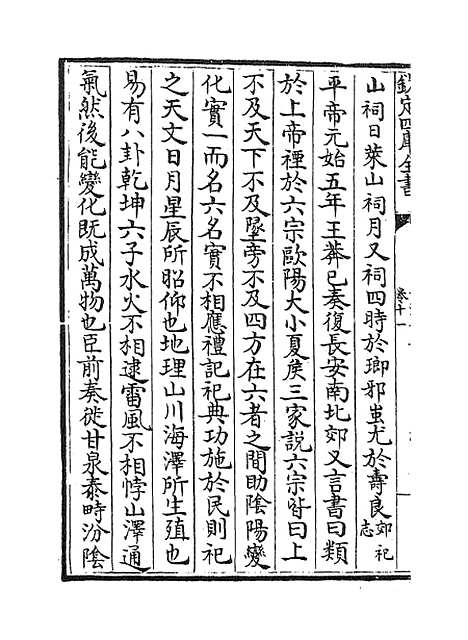 欽定四庫全書
卷十一
山祠日萊山祠月又祠四時於瑯邪蚩尤於壽良郊祀志
平帝元始五年王莽已奏復長安南北郊又言書曰類
於上帝禋於六宗歐陽大小夏侯三家說六宗皆曰上
不及天下不及墬旁不及四方在六者之間助陰陽變
化實一而名六名實不相應禮記祀典功施於民則祀
之天文日月星辰所昭仰也地理山川海澤所生殖也
易有八卦乾坤六子水火不相逮雷風不相悖山澤通
氣然後能變化既成萬物也臣前奏徙甘泉泰畤汾陰